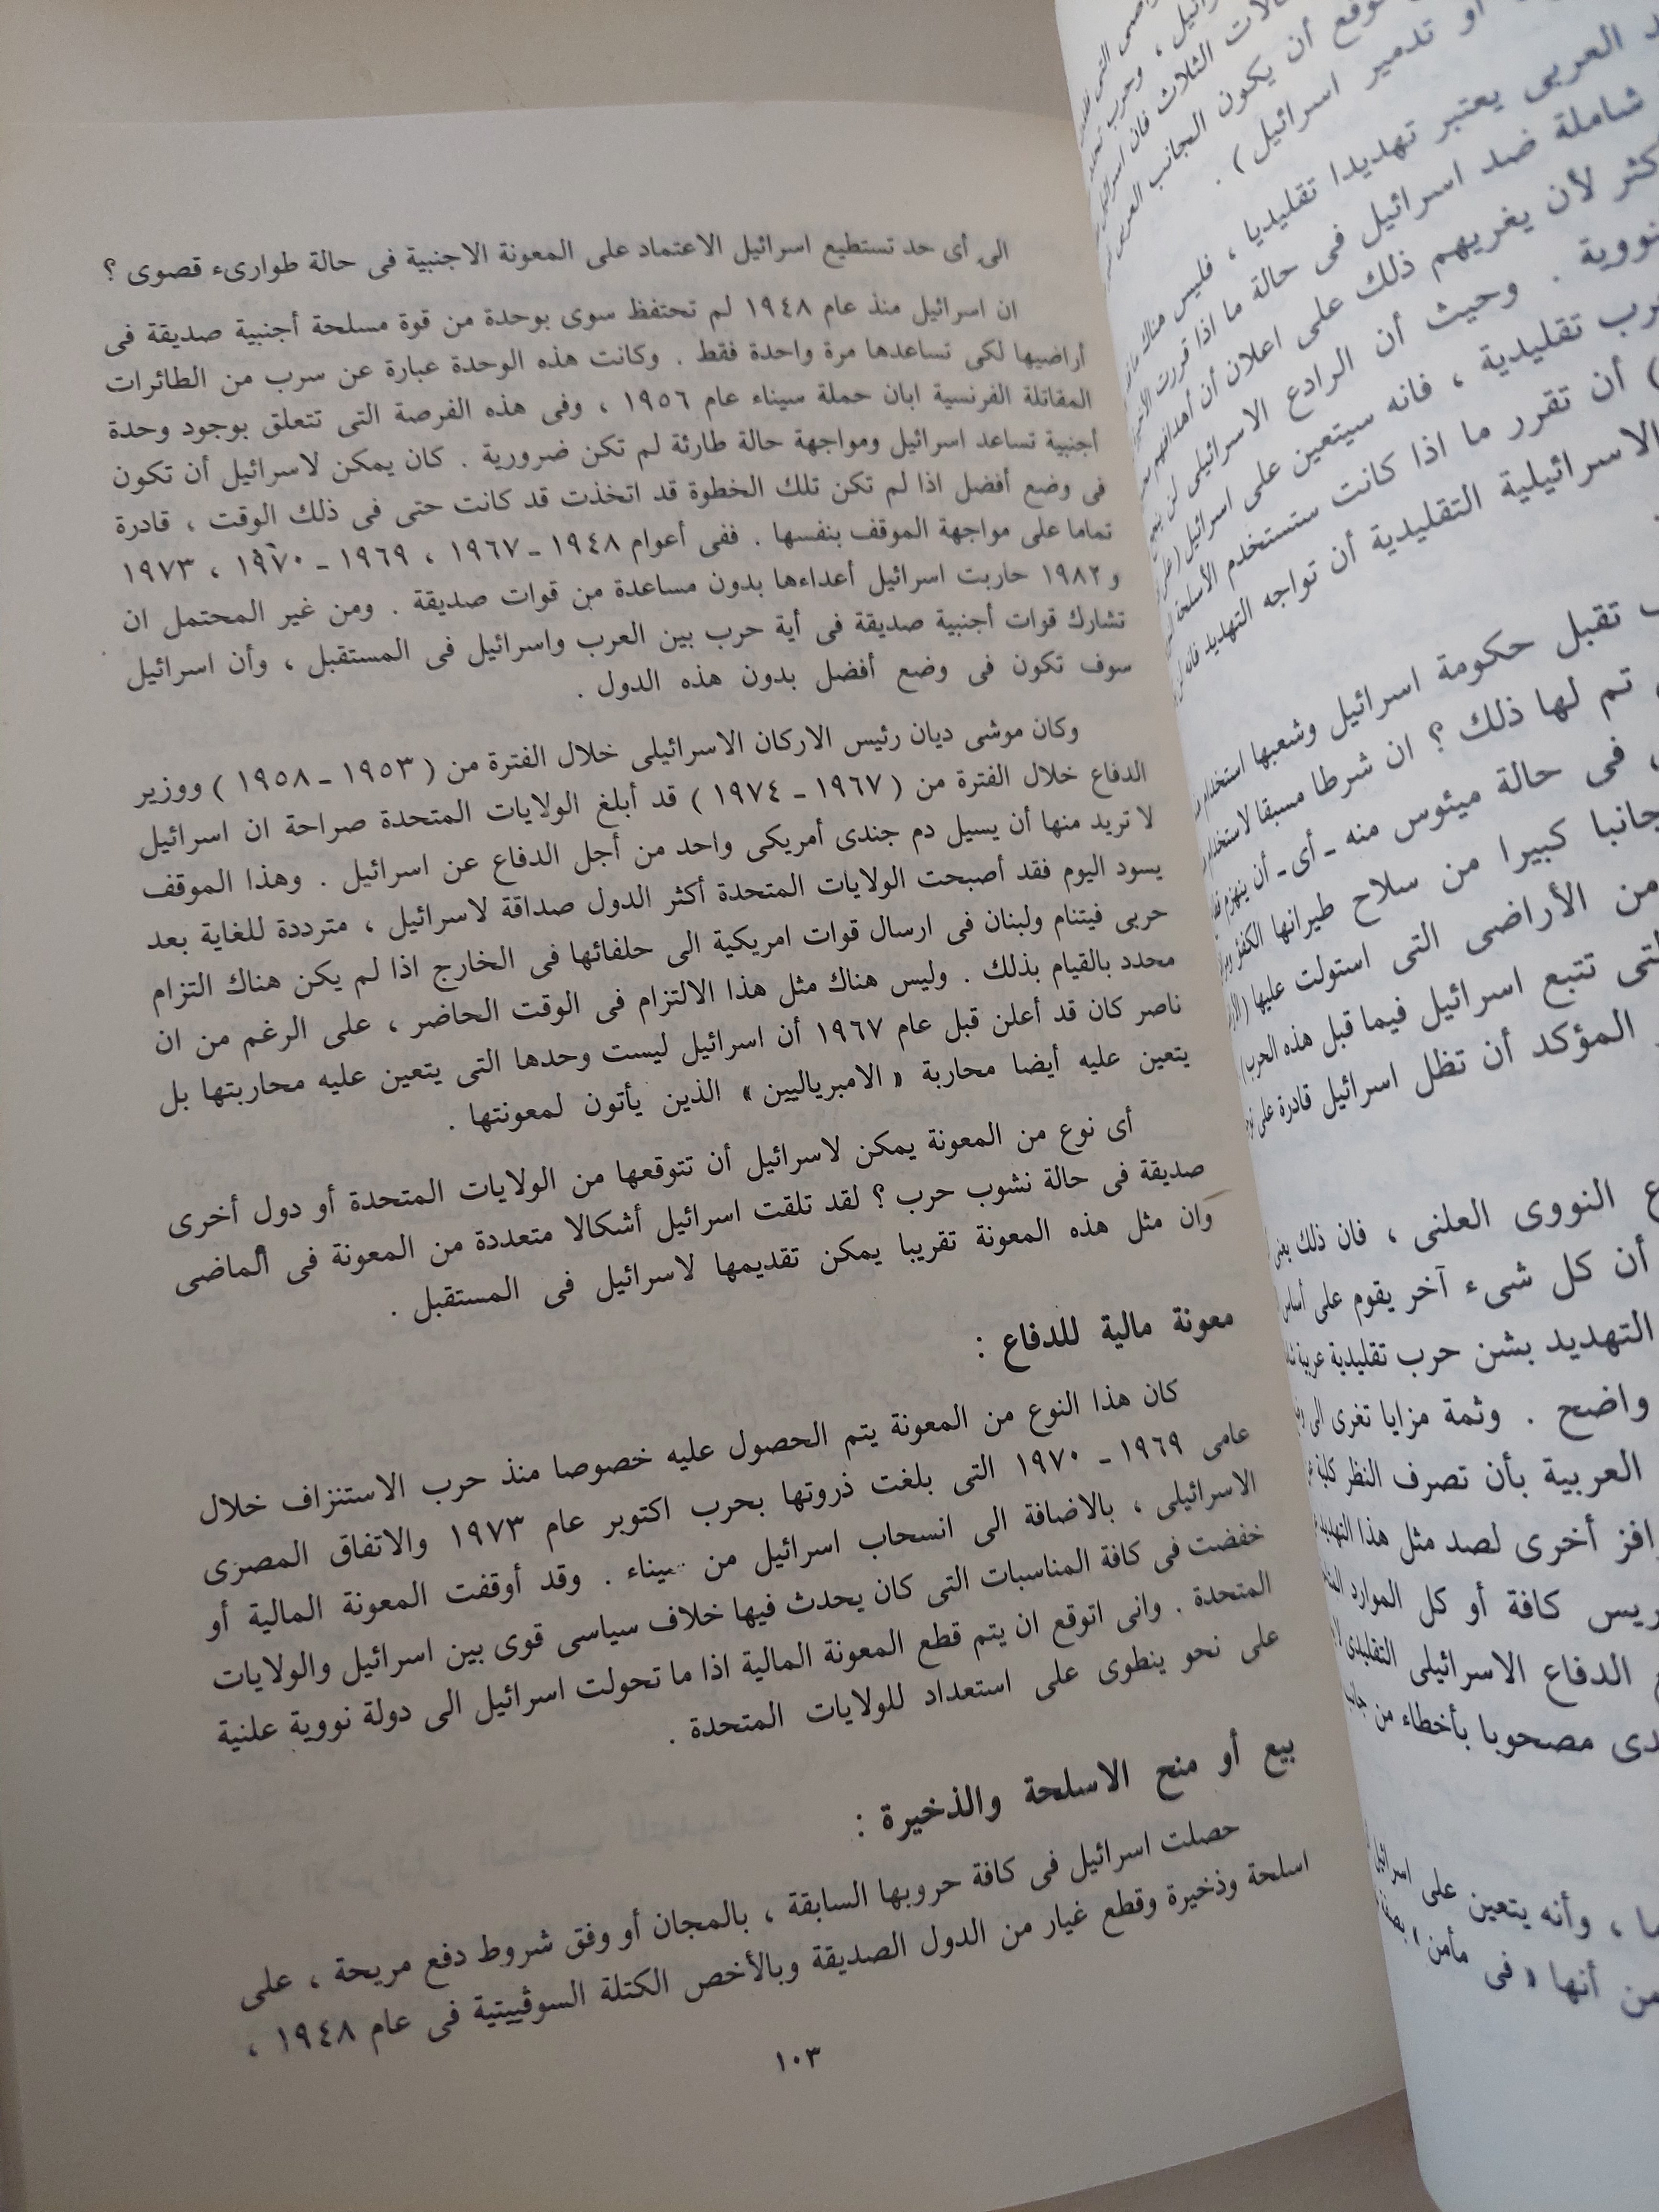 أو تدمير اسرائيل ) .
العربى يعتبر تهديدا تقليديا ، فليس هناك
شاملة ضد اسرائيل فى حالة ما اذا قررت
لأن يغريهم ذلك على اعلان أن أهدافهم
نووية . وحيث أن الرادع الاسرائيلى لن
تقليدية ، فانه سيتعين على اسرائيل
) أن تقرر ما اذا كانت ستستخدم الأسلحة
الاسرائيلية التقليدية أن تواجه التهديد فانه
تقبل حكومة اسرائيل وشعبها استخدام
تم لها ذلك ؟ ان شرطا مسبقا لاستخدام
فى حالة ميئوس منه ـ أى ـ أن ينهزم
جانبا كبيرا من سلاح طيرانها الكفؤ
من الأراضى التى استولت عليها
التى تتبع اسرائيل فيما قبل هذه الحرب )
المؤكد أن تظل اسرائيل قادرة على
النووى العلنى ، فان ذلك يعنى
أن كل شىء آخر يقوم على أساس
التهديد بشن حرب تقليدية عربية
واضح . وثمة مزايا تغرى
العربية بأن تصرف النظر كلية
أخرى لصد مثل هذا التهديد
كافة أو كل الموارد
الدفاع الاسرائيلى التقليدى
مصحوبا بأخطاء من جانب
، وأنه يتعين على
من أنها « فى مأمن »
الى أى حد تستطيع اسرائيل الاعتماد على المعونة الاجنبية فى حالة طوارىء قصوى ؟
ان اسرائيل منذ عام ١٩٤٨ لم تحتفظ سوى بوحدة من قوة مسلحة أجنبية صديقة فى
أراضيها لكى تساعدها مرة واحدة فقط . وكانت هذه الوحدة عبارة عن سرب من الطائرات
المقاتلة الفرنسية ابان حملة سيناء عام ١٩٥٦ ، وفى هذه الفرصة التى تتعلق بوجود وحدة
أجنبية تساعد اسرائيل ومواجهة حالة طارئة لم تكن ضرورية . كان يمكن لاسرائيل أن تكون
فى وضع أفضل اذا لم تكن تلك الخطوة قد اتخذت قد كانت حتى فى ذلك الوقت ، قادرة
تماما على مواجهة الموقف بنفسها . ففى أعوام ١٩٤٨ ـ ١٩٦٧ ، ١٩٦٩ ـ ١٩٧٠ ، ١٩٧٣
و ١٩٨٢ حاربت اسرائيل أعداءها بدون مساعدة من قوات صديقة . ومن غير المحتمل ان
تشارك قوات أجنبية صديقة فى أية حرب بين العرب واسرائيل فى المستقبل ، وأن اسرائيل
سوف تكون فى وضع أفضل بدون هذه الدول .
وكان موشى ديان رئيس الاركان الاسرائيلى خلال الفترة من ( ١٩٥٣ ـ ١٩٥٨ ) ووزير
الدفاع خلال الفترة من ( ١٩٦٧ ـ ١٩٧٤ ) قد أبلغ الولايات المتحدة صراحة ان اسرائيل
لا تريد منها أن يسيل دم جندى أمريكى واحد من أجل الدفاع عن اسرائيل . وهذا الموقف
يسود اليوم فقد أصبحت الولايات المتحدة أكثر الدول صداقة لاسرائيل ، مترددة للغاية بعد
حربى فيتنام ولبنان فى ارسال قوات امريكية الى حلفائها فى الخارج اذا لم يكن هناك التزام
محدد بالقيام بذلك . وليس هناك مثل هذا الالتزام فى الوقت الحاضر ، على الرغم من ان
ناصر كان قد أعلن قبل عام ١٩٦٧ أن اسرائيل ليست وحدها التى يتعين عليه محاربتها بل
يتعين عليه أيضا محاربة « الامبرياليين » الذين يأتون لمعونتها .
أى نوع من المعونة يمكن لاسرائيل أن تتوقعها من الولايات المتحدة أو دول أخرى
صديقة فى حالة نشوب حرب ؟ لقد تلقت اسرائيل أشكالا متعددة من المعونة فى الماضى
وان مثل هذه المعونة تقريبا يمكن تقديمها لاسرائيل فى المستقبل .
معونة مالية للدفاع :
كان هذا النوع من المعونة يتم الحصول عليه خصوصا منذ حرب الاستنزاف خلال
عامى ١٩٦٩ ـ ١٩٧٠ التى بلغت ذروتها بحرب اكتوبر عام ١٩٧٣ والاتفاق المصرى
الاسرائيلى ، بالاضافة الى انسحاب اسرائيل من سيناء . وقد أوقفت المعونة المالية أو
خفضت فى كافة المناسبات التى كان يحدث فيها خلاف سياسى قوى بين اسرائيل والولايات
المتحدة . وانى اتوقع ان يتم قطع المعونة المالية اذا ما تحولت اسرائيل الى دولة نووية علنية
على نحو ينطوى على استعداد للولايات المتحدة .
بيع أو منح الاسلحة والذخيرة :
حصلت اسرائيل فى كافة حروبها السابقة ، بالمجان أو وفق شروط دفع مريحة ، على
اسلحة وذخيرة وقطع غيار من الدول الصديقة وبالأخص الكتلة السوڤييتية فى عام ١٩٤٨ ،
١٠٣